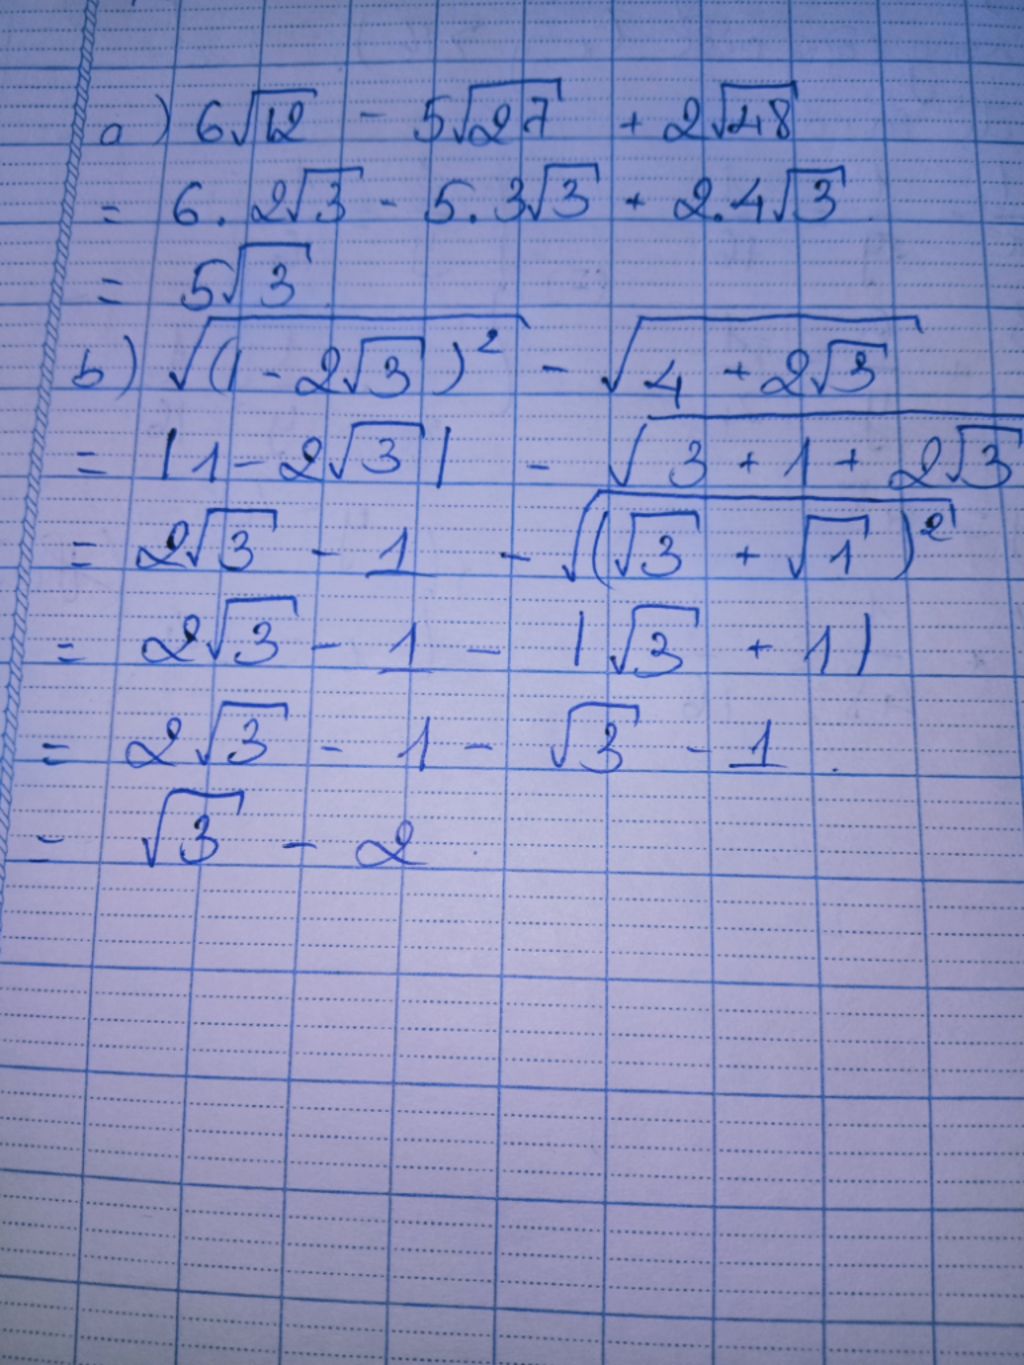 a) 6√12 - 5√27 + 2√48
= 6. 2√3 - 5. 3√3 + 2.4√3
= 5√3
b) √(1 - 2√3)² - √4 + 2√3
= |1 - 2√3| - √3 + 1 + 2√3
= 2√3 - 1 - √(√3 + √1)²
= 2√3 - 1 - |√3 + 1|
= 2√3 - 1 - √3 - 1
= √3 - 2